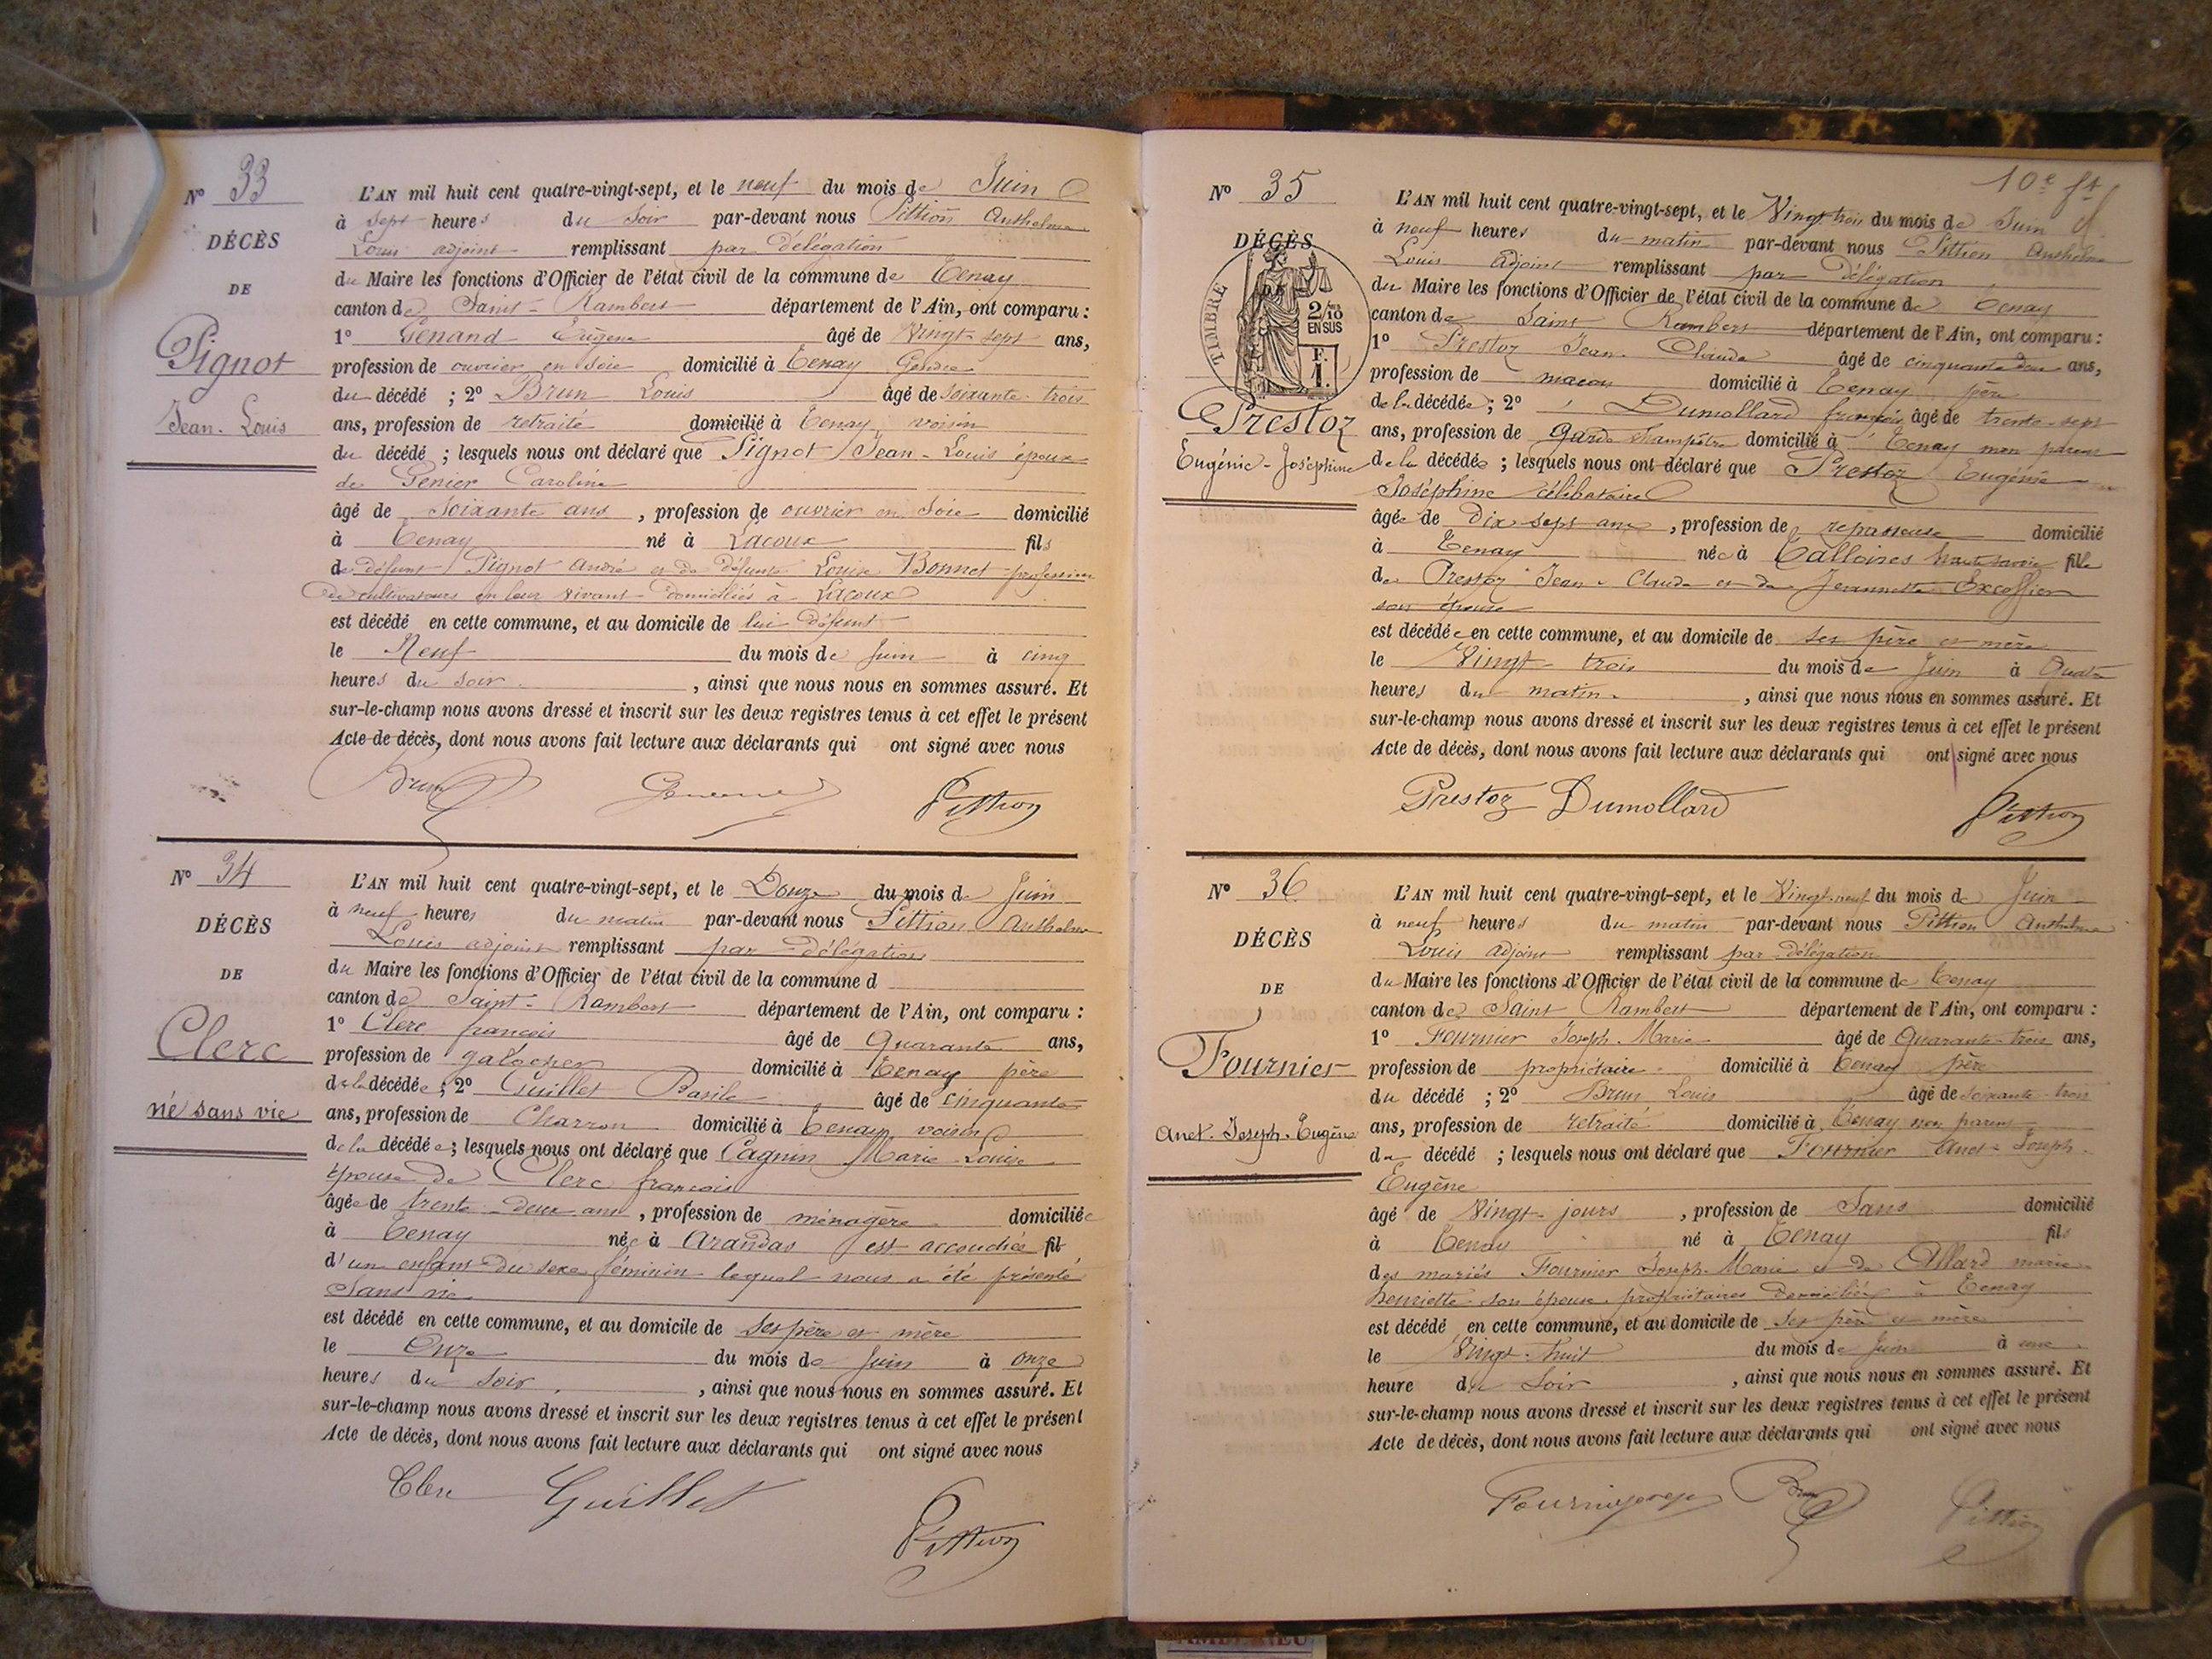 N° 33
DÉCÈS
DE
Pignot
Jean-Louis
L'AN mil huit cent quatre-vingt-sept, et le neuf du mois de Juin
à sept heures du soir par-devant nous Pittion Anthelme
Louis adjoint remplissant par délégation
du Maire les fonctions d'Officier de l'état civil de la commune de Tenay
canton de Saint-Rambert département de l'Ain, ont comparu :
1° Genand Eugène âgé de Vingt-sept ans,
profession de ouvrier en soie domicilié à Tenay Gendre
du décédé ; 2° Brun Louis âgé de soixante-trois
ans, profession de retraité domicilié à Tenay voisin
du décédé ; lesquels nous ont déclaré que Pignot Jean-Louis époux
de Genier Caroline
âgé de soixante ans, profession de ouvrier en soie domicilié
à Tenay né à Lacoux fils
de défunt Pignot André et de défunte Louise Bonnet profession
de cultivateurs en leur vivant domiciliés à Lacoux
est décédé en cette commune, et au domicile de lui défunt
le Neuf du mois de Juin à cinq
heures du soir, ainsi que nous nous en sommes assuré. Et
sur-le-champ nous avons dressé et inscrit sur les deux registres tenus à cet effet le présent
Acte de décès, dont nous avons fait lecture aux déclarants qui ont signé avec nous
Brun Pittion
N° 34
DÉCÈS
DE
Clerc
né sans vie
L'AN mil huit cent quatre-vingt-sept, et le Douze du mois de Juin
à neuf heures du matin par-devant nous Pittion Anthelme
Louis adjoint remplissant par délégation
du Maire les fonctions d'Officier de l'état civil de la commune d
canton de Saint-Rambert département de l'Ain, ont comparu :
1° Clerc françois âgé de Quarante ans,
profession de galocher domicilié à Tenay père
de la décédée ; 2° Guillet Basile âgé de cinquante
ans, profession de Charron domicilié à Tenay voisin
de la décédée ; lesquels nous ont déclaré que Cagnin Marie Louise
épouse de Clerc françois
âgée de trente-deux ans, profession de ménagère domiciliée
à Tenay née à Arandas est accouchée fil
d'un enfant du sexe féminin lequel nous a été présenté
Sans vie
est décédé en cette commune, et au domicile de ses père et mère
le Onze du mois de Juin à onze
heures du soir, ainsi que nous nous en sommes assuré. Et
sur-le-champ nous avons dressé et inscrit sur les deux registres tenus à cet effet le présent
Acte de décès, dont nous avons fait lecture aux déclarants qui ont signé avec nous
Clerc Guillet
Pittion
10e ft
N° 35
DÉCÈS
DE
TIMBRE
2/10 EN SUS
F. 1.
Prestoz
Eugénie-Joséphine
L'AN mil huit cent quatre-vingt-sept, et le Vingt-trois du mois de Juin
à neuf heures du matin par-devant nous Pittion Anthelme
Louis Adjoint remplissant par délégation
du Maire les fonctions d'Officier de l'état civil de la commune de Tenay
canton de Saint Rambert département de l'Ain, ont comparu :
1° Prestoz Jean-Claude âgé de cinquante deux ans,
profession de maçon domicilié à Tenay père
de la décédée ; 2° Dumollard françois âgé de trente-sept
ans, profession de Garde champêtre domicilié à Tenay non parent
de la décédée ; lesquels nous ont déclaré que Prestoz Eugénie
Joséphine célibataire
âgée de Dix sept ans, profession de repasseuse domicilié
à Tenay née à Talloires haute savoie fille
de Prestoz Jean-Claude et de Jeannette Excoffier
son épouse
est décédée en cette commune, et au domicile de ses père et mère
le Vingt-trois du mois de Juin à Quatre
heures du matin, ainsi que nous nous en sommes assuré. Et
sur-le-champ nous avons dressé et inscrit sur les deux registres tenus à cet effet le présent
Acte de décès, dont nous avons fait lecture aux déclarants qui ont signé avec nous
Prestoz Dumollard Pittion
N° 36
DÉCÈS
DE
Fournier
Anet-Joseph-Eugène
L'AN mil huit cent quatre-vingt-sept, et le Vingt-neuf du mois de Juin
à neuf heures du matin par-devant nous Pittion Anthelme
Louis Adjoint remplissant par délégation
du Maire les fonctions d'Officier de l'état civil de la commune de Tenay
canton de Saint Rambert département de l'Ain, ont comparu :
1° Fournier Joseph-Marie âgé de Quarante-trois ans,
profession de propriétaire domicilié à Tenay père
du décédé ; 2° Brun Louis âgé de soixante-trois
ans, profession de retraité domicilié à Tenay non parent
du décédé ; lesquels nous ont déclaré que Fournier Anet-Joseph-
Eugène
âgé de Vingt-jours, profession de Sans domicilié
à Tenay né à Tenay fils
des mariés Fournier Joseph-Marie et de Allard marie-
henriette son épouse propriétaires domiciliés à Tenay
est décédé en cette commune, et au domicile de ses père et mère
le Vingt-huit du mois de Juin à une
heure du Soir, ainsi que nous nous en sommes assuré. Et
sur-le-champ nous avons dressé et inscrit sur les deux registres tenus à cet effet le présent
Acte de décès, dont nous avons fait lecture aux déclarants qui ont signé avec nous
Brun Pittion